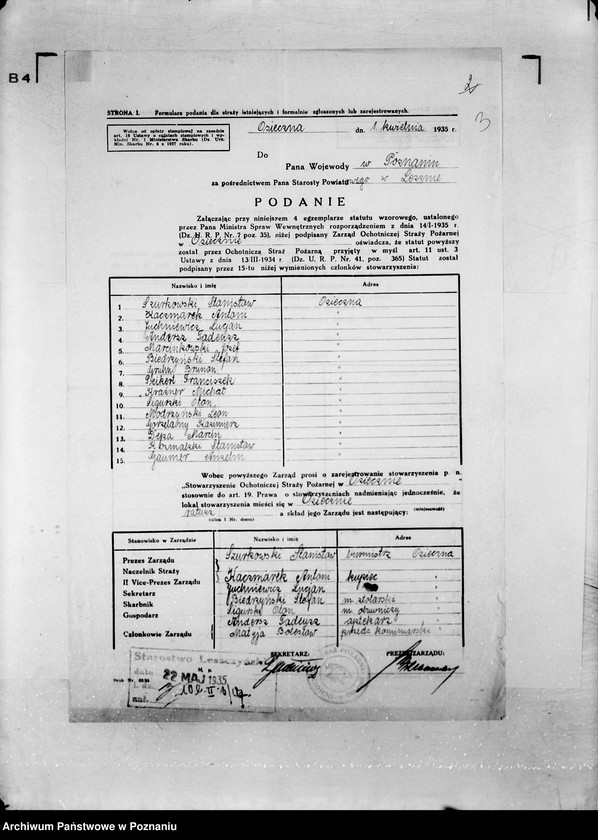 B4
3
STRONA I. Formularz podania dla straży istniejących i formalnie zgłoszonych lub zarejestrowanych.
Wolne od opłaty stemplowej na zasadzie
art. 16 Ustawy o opłatach stemplowych i wy-
kładni Nr. 1 Ministerstwa Skarbu (Dz. Urz.
Min. Skarbu Nr. 6 z 1927 roku).
Osieczna dn. 1. kwietnia 1935 r.
Do
Pana Wojewody w Poznaniu
za pośrednictwem Pana Starosty Powiatowego w Lesznie
PODANIE
Załączając przy niniejszem 4 egzemplarze statutu wzorowego, ustalonego
przez Pana Ministra Spraw Wewnętrznych rozporządzeniem z dnia 14/I-1935 r.
(Dz. U. R. P. Nr. 7 poz. 35), niżej podpisany Zarząd Ochotniczej Straży Pożarnej
w Osiecznie oświadcza, że statut powyższy
został przez Ochotniczą Straż Pożarną przyjęty w myśl art. 11 ust. 3
Ustawy z dnia 13/III-1934 r. (Dz. U. R. P. Nr. 41, poz. 365) Statut został
podpisany przez 15-tu niżej wymienionych członków stowarzyszenia:
Nazwisko i imię Adres
1 Szurkowski Stanisław Osieczna
2. Kaczmarek Antoni "
3. Juchniewicz Lucjan "
4. Andersz Tadeusz "
5. Marcinkowski Józef "
6. Biedrzyński Stefan "
7. Bruno "
8. Franciszek "
9. Michał "
10. Sigurski Oton "
11. Modrzyński Leon "
12. Gorzelanny Kazimierz "
13. Marcin "
14. Stanisław "
15. Gaumer Anzelm "
Wobec powyższego Zarząd prosi o zarejestrowanie stowarzyszenia p. n.
„Stowarzyszenie Ochotniczej Straży Pożarnej w Osiecznie
stosownie do art. 19. Prawa o stowarzyszeniach nadmieniając jednocześnie, że
lokal stowarzyszenia mieści się w Osiecznie
(miejscowość)
ratusz a skład jego Zarządu jest następujący:
(ulica i Nr. domu)
Stanowisko w Zarządzie Nazwisko i imię Adres
Prezes Zarządu Szurkowski Stanisław burmistrz Osieczna
Naczelnik Straży Kaczmarek Antoni kupiec "
II Vice-Prezes Zarządu Juchniewicz Lucjan "
Sekretarz Biedrzyński Stefan m. stolarski "
Skarbnik Sigurski Oton m. obuwniczy "
Gospodarz Andersz Tadeusz aptekarz "
Członkowie Zarządu Matyja Bolesław kominiarski "
SEKRETARZ: PREZES ZARZĄDU:
Starostwo Leszczyńskie
data 22 MAJ 1935
zał.
Archiwum Państwowe w Poznaniu